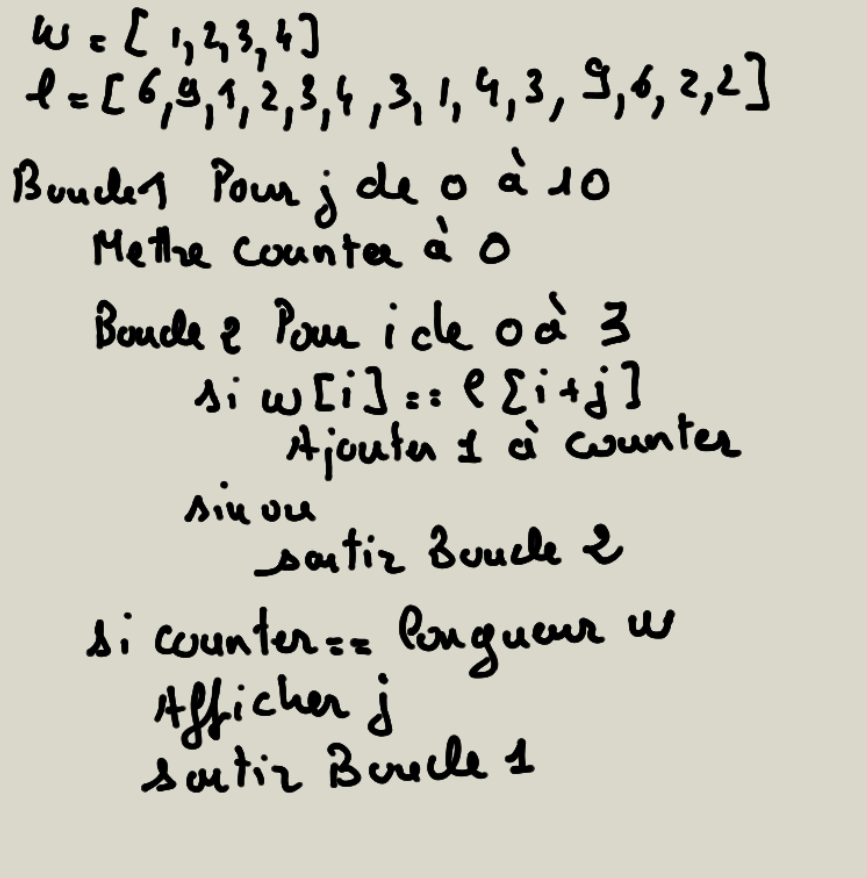 w = [1,2,3,4]
l = [6,9,1,2,3,4,3,1,4,3,9,6,2,2]
Boucle1 Pour j de 0 à 10
Mettre counter à 0
Boucle 2 Pour i de 0 à 3
si w[i] == l[i+j]
Ajouter 1 à counter
sinon
sortir Boucle 2
si counter == longueur w
Afficher j
sortir Boucle 1